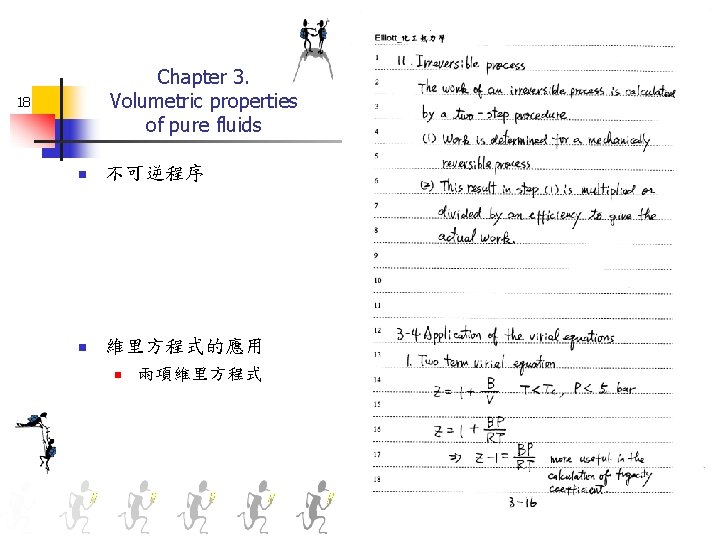 Chapter 3.
18
Volumetric properties
of pure fluids
不可逆程序
維里方程式的應用
兩項維里方程式
Elliott_化工熱力學
1 11. Irreversible process
2 The work of an irreversible process is calculated
3 by a two-step procedure
4 (1) Work is determined for a mechanically
5 reversible process
6 (2) This result in step (1) is multiplied or
7 divided by an efficiency to give the
8 actual work.
9
10
11
12 3-4 Application of the virial equations
13 1. Two term virial equation
14 Z = 1 + B/V T<Tc, P<5 bar
15
16 Z = 1 + BP/RT
17 ⇒ Z-1 = BP/RT more useful in the
18 calculation of fugacity
coefficient.
3-16